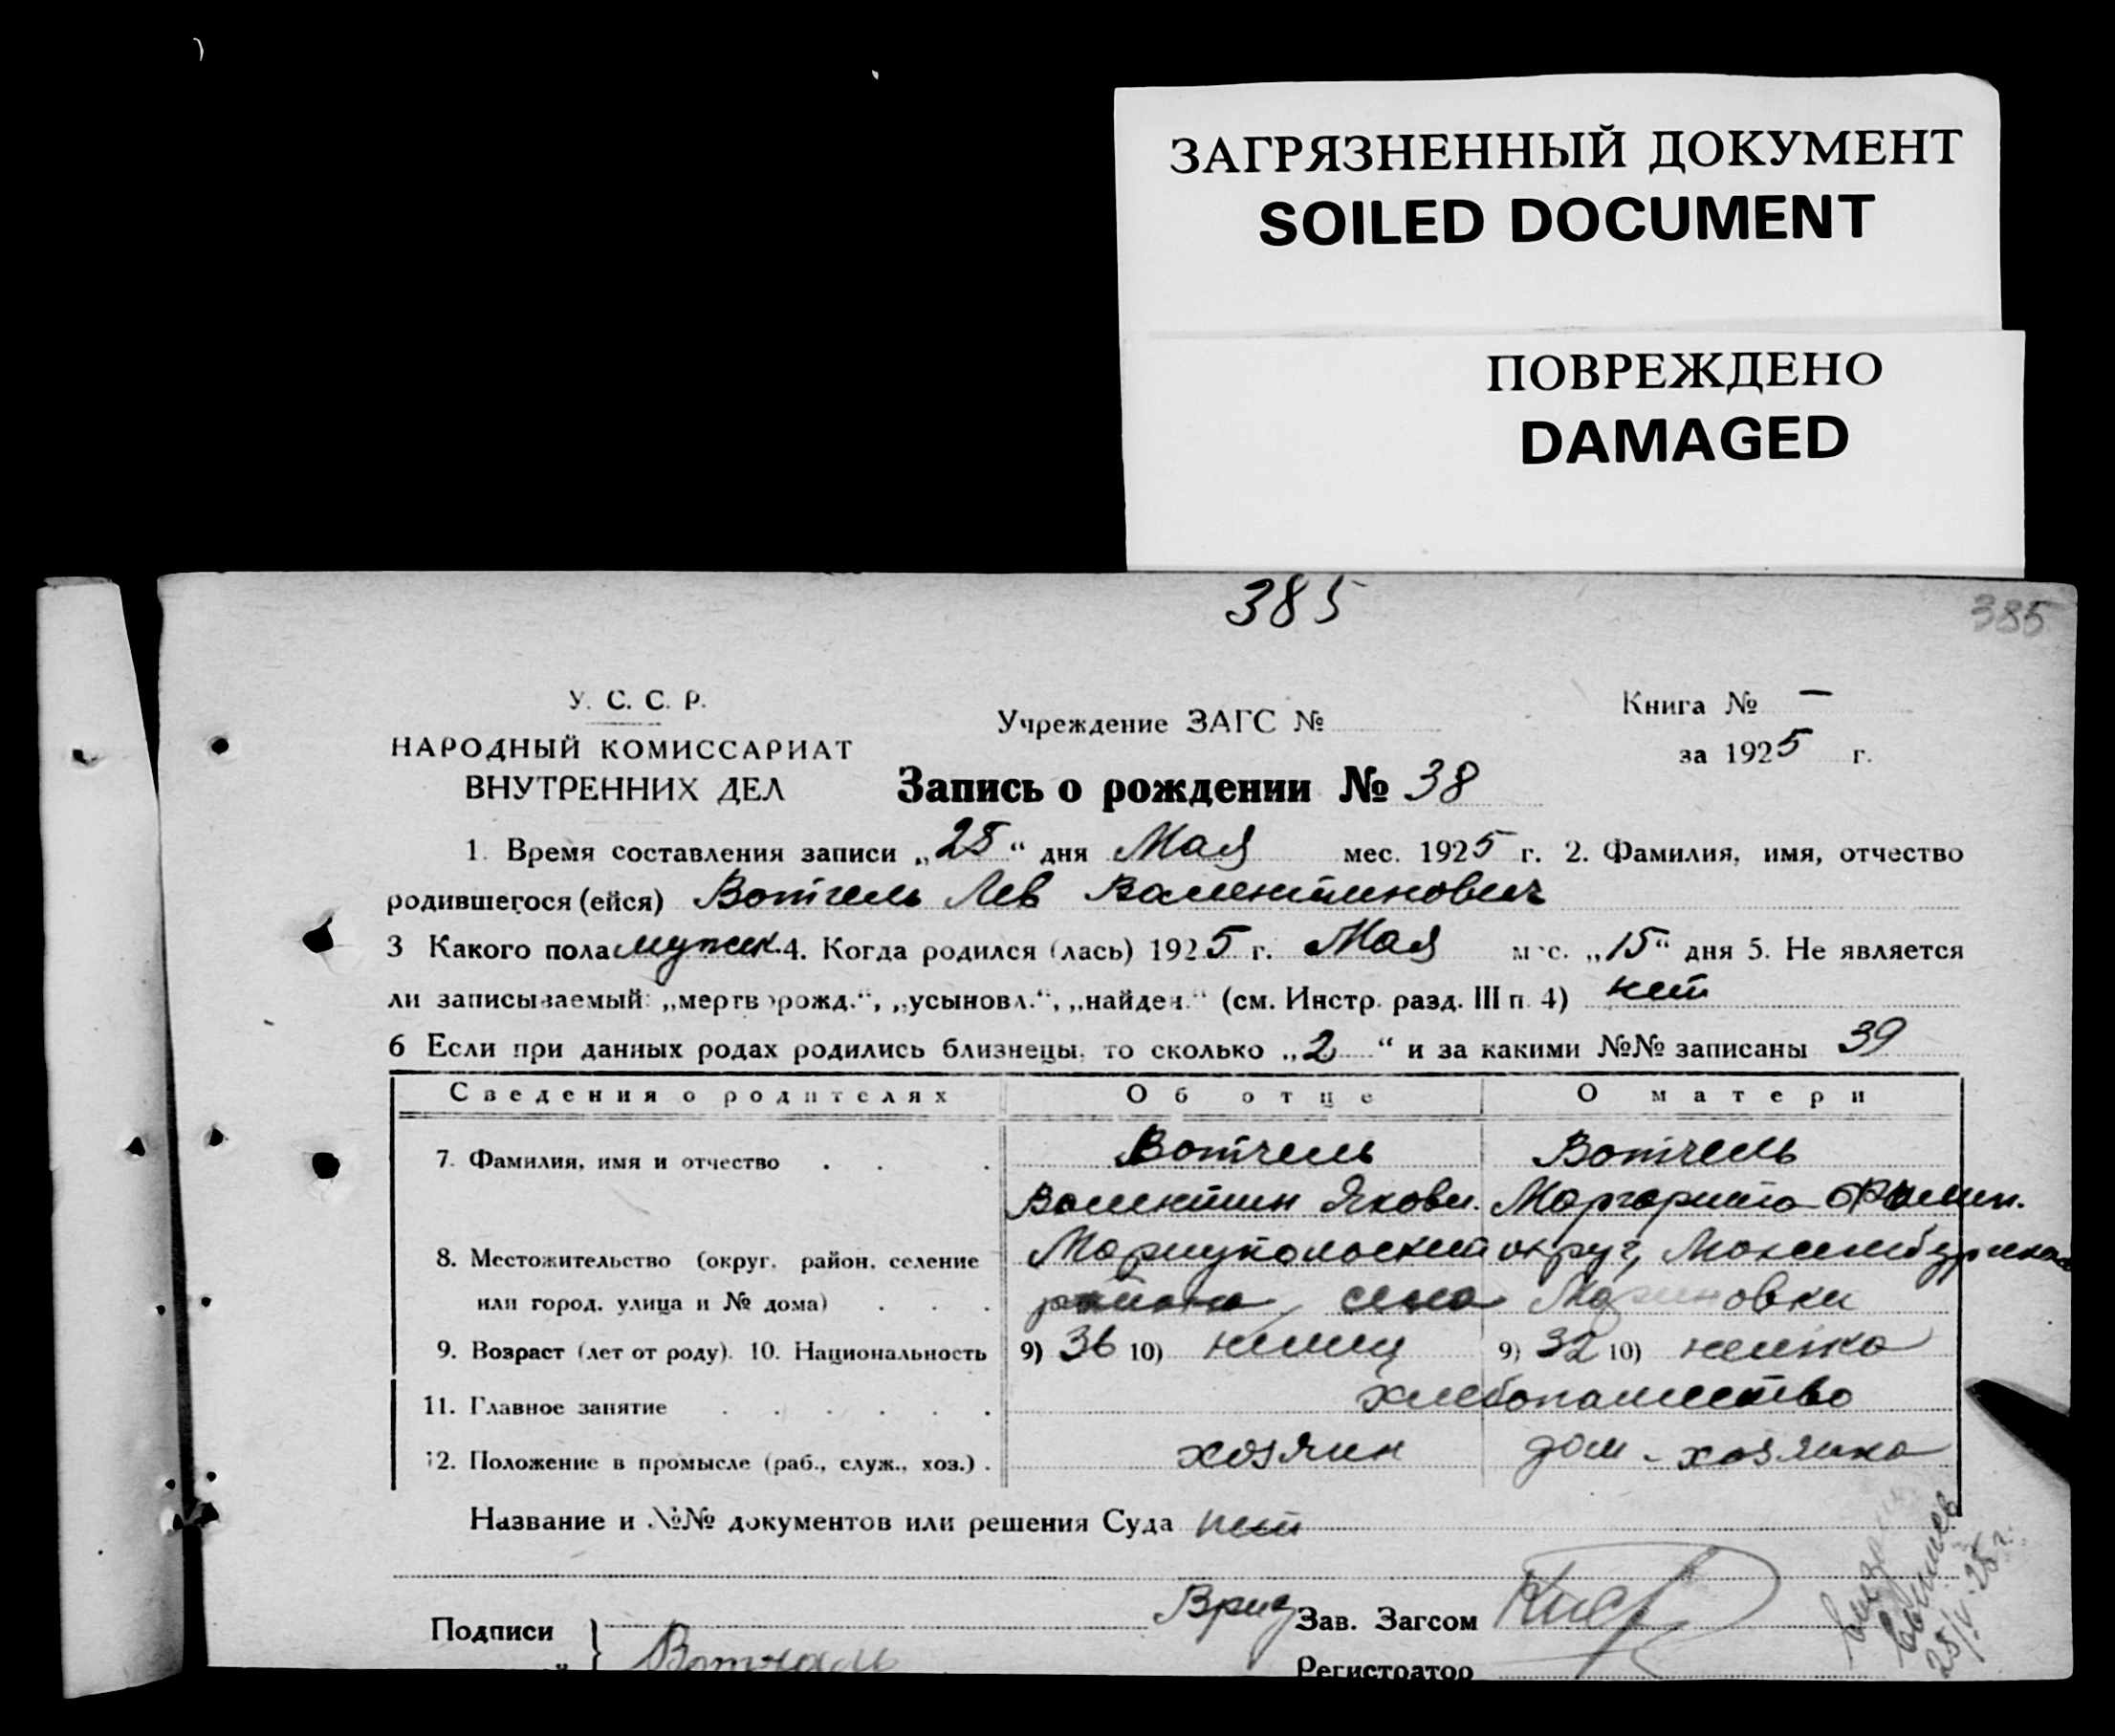 ЗАГРЯЗНЕННЫЙ ДОКУМЕНТ
SOILED DOCUMENT
ПОВРЕЖДЕНО
DAMAGED
385
385
У. С. С. Р.
НАРОДНЫЙ КОМИССАРИАТ
ВНУТРЕННИХ ДЕЛ
Учреждение ЗАГС №
Книга № —
за 1925 г.
Запись о рождении № 38
1. Время составления записи „25“ дня Мая мес. 1925 г. 2. Фамилия, имя, отчество
родившегося (ейся) Вотчель Лев Валентинович
3 Какого пола мужск. 4. Когда родился (лась) 1925 г. Мая мес. „15“ дня 5. Не является
ли записываемый: „мертворожд.“, „усыновл.“, „найден.“ (см. Инстр. разд. III п. 4) нет
6 Если при данных родах родились близнецы, то сколько „2“ и за какими №№ записаны 39
Сведения о родителях Об отце О матери
7. Фамилия, имя и отчество . . . Вотчель Вотчель
Валентин Якови. Маргарита
8. Местожительство (округ, район, селение Мариупольский округ,
или город, улица и № дома) . . . района, села
9. Возраст (лет от роду). 10. Национальность 9) 36 10) немец 9) 32 10) немка
11. Главное занятие . . . . . . хлебопашество
12. Положение в промысле (раб., служ., хоз.) . хозяин дом-хозяйка
Название и №№ документов или решения Суда нет
Подписи } Врид Зав. Загсом
Вотчель Регистратор
25/V-25 г.